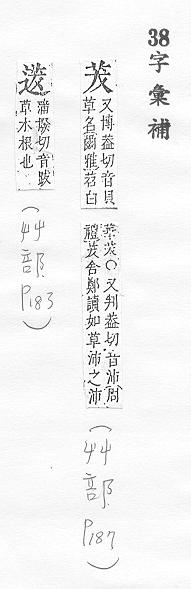 38字彙補
茇
又博蓋切音貝
草名爾雅苕白
華茇○又判蓋切音沛周
禮茇舍鄭讀如草沛之沛
(艸部P187)
蒲撥切音跋
草木根也
(艸部P183)